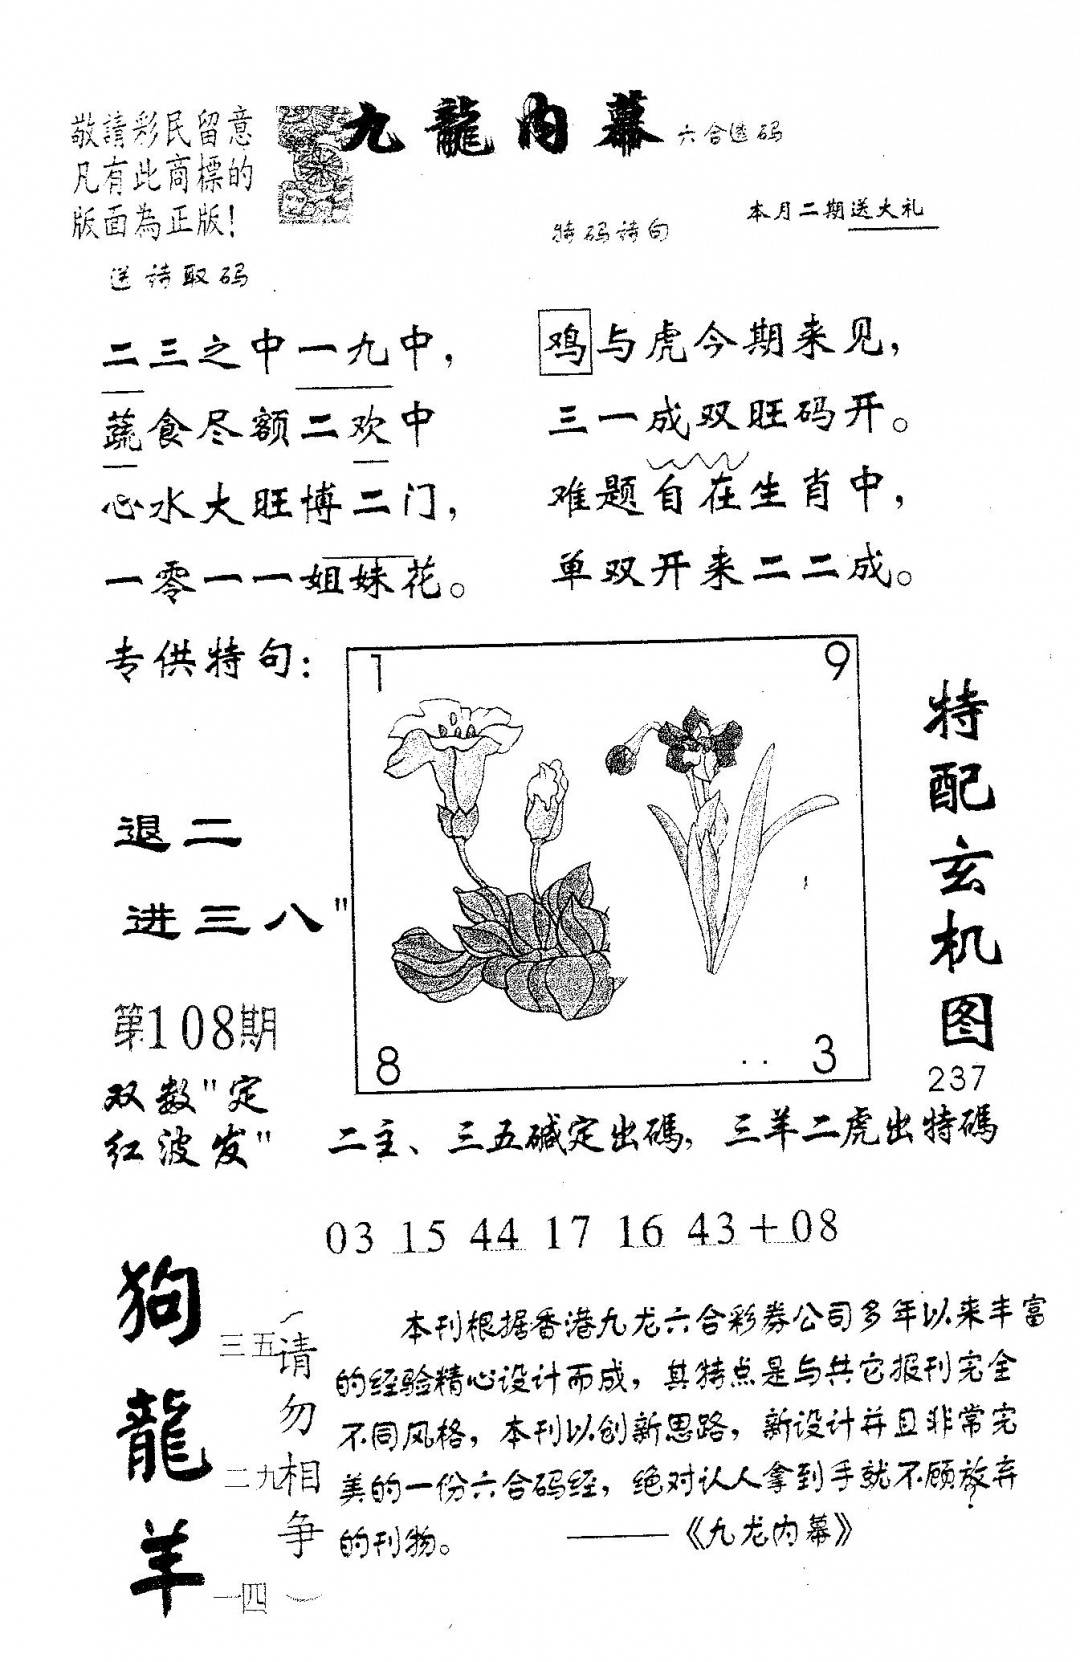 敬請彩民留意
凡有此商標的
版面為正版！
九龍内幕
六合透码
本月二期送大礼
送诗取码
特码诗句
二三之中一九中，
蔬食尽额二欢中
心水大旺博二门，
一零一一姐妹花。
鸡与虎今期来见，
三一成双旺码开。
难题自在生肖中，
单双开来二二成。
专供特句：
退二
进三八"
1
9
8
3
特配玄机图
237
第108期
双数"定
红波发"
二主、三五碱定出碼，三羊二虎出特碼
03 15 44 17 16 43+08
狗 三五
龍 二九
羊 一四
（请勿相争）
本刊根据香港九龙六合彩券公司多年以来丰富
的经验精心设计而成，其特点是与其它报刊完全
不同风格，本刊以创新思路，新设计并且非常完
美的一份六合码经，绝对认人拿到手就不顾放弃
的刊物。 ——《九龙内幕》